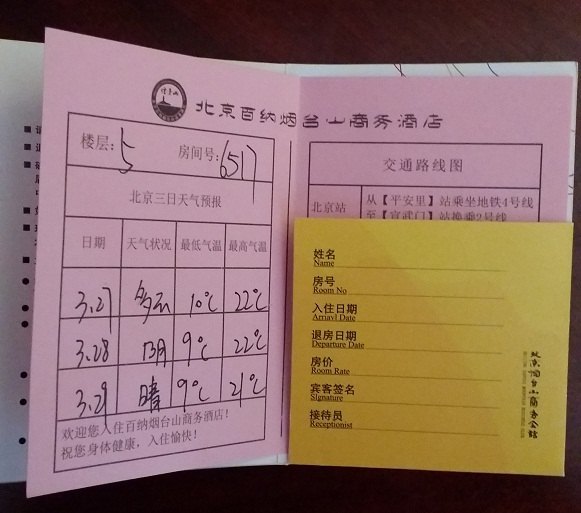 北京百纳烟台山商务酒店
楼层: 5 房间号: 6517
北京三日天气预报
日期 天气状况 最低气温 最高气温
3.27 多云 10℃ 22℃
3.28 阴 9℃ 22℃
3.29 晴 9℃ 21℃
欢迎您入住百纳烟台山商务酒店!
祝您身体健康,入住愉快!
交通路线图
北京站
从【平安里】站乘坐地铁4号线
至【宣武门】站换乘2号线
姓名
Name
房号
Room No
入住日期
Arriavl Date
退房日期
Departure Date
房价
Room Rate
宾客签名
Signature
接待员
Receptionist
北京烟台山商务会馆